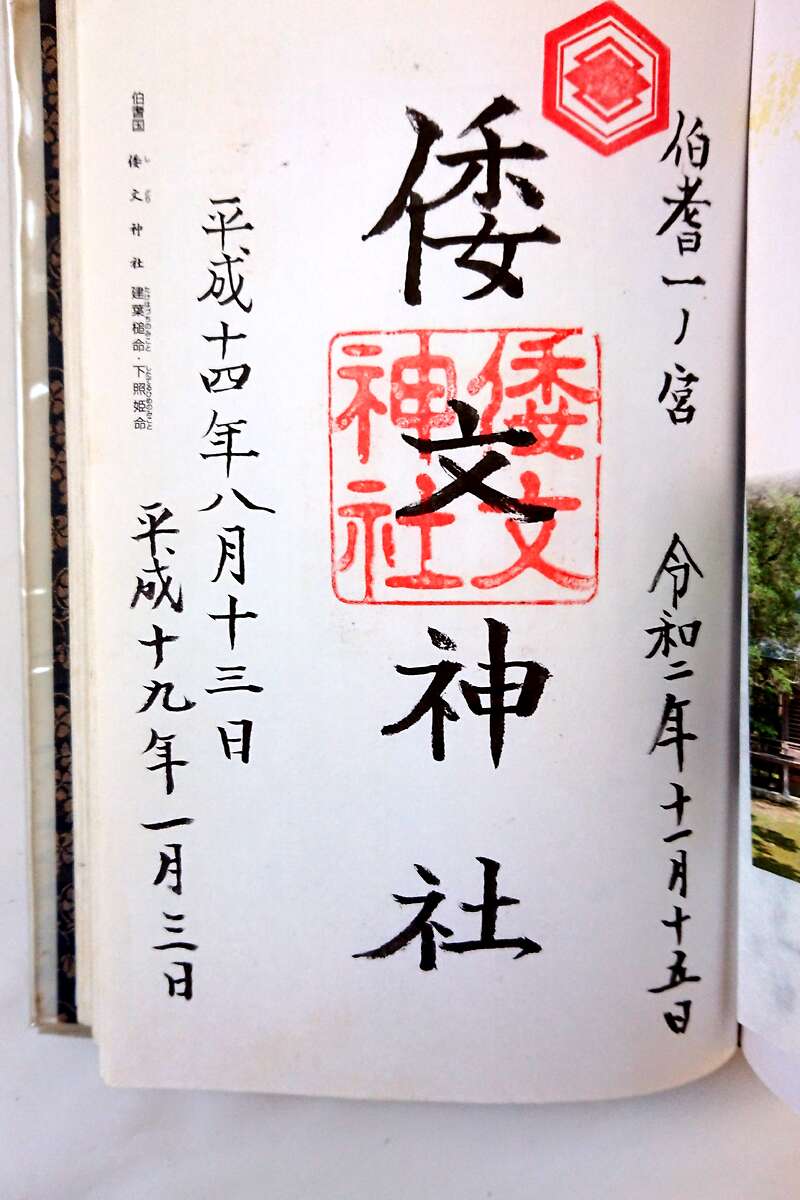 伯耆一ノ宮 令和二年十一月十五日
倭文神社
倭文
神社
平成十四年八月十三日
平成十九年一月三日
伯耆国 倭文神社 建葉槌命・下照姫命